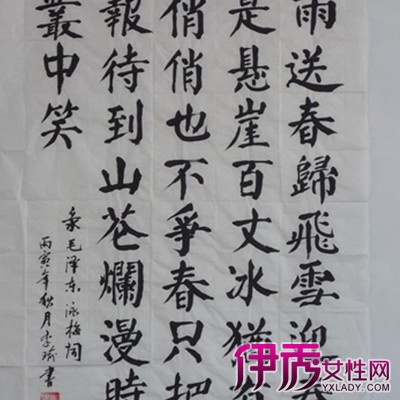 雨送春歸飛雪迎春
是悬崖百丈冰猶有
俏俏也不爭春只把
報待到山花爛漫時
叢中笑
录毛泽东詠梅詞
丙寅年秋月李書
伊秀女性网
YXLADY.COM